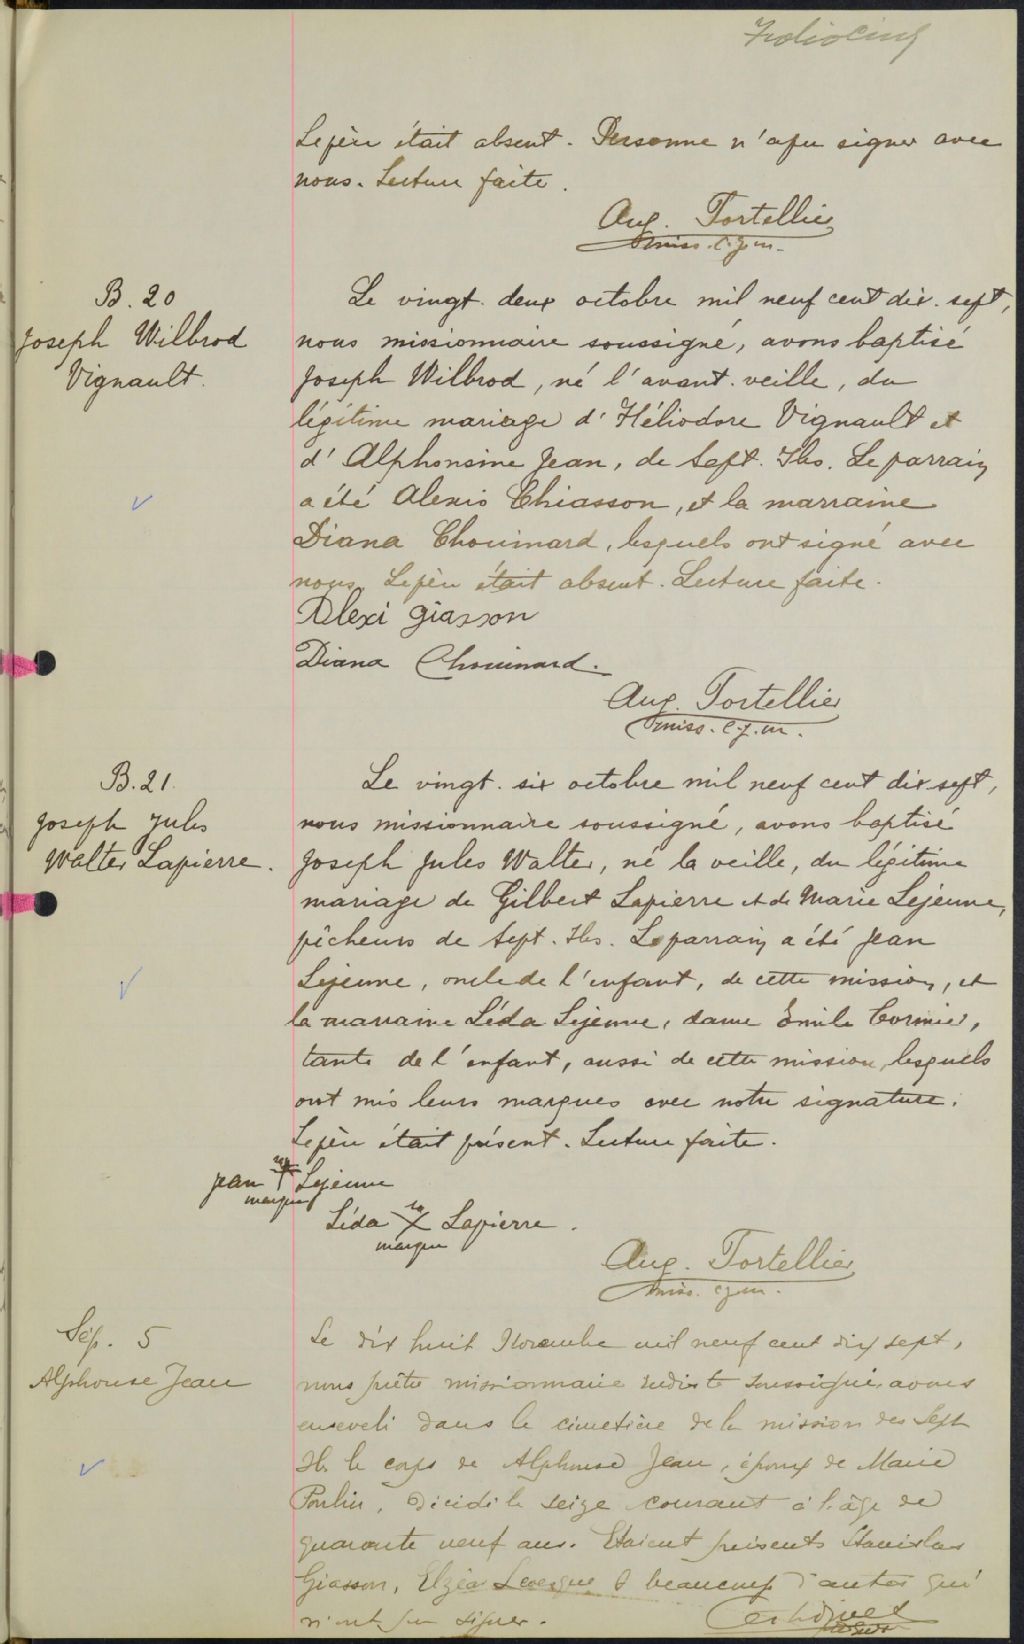 Folio Cinq
Le père était absent. Personne n'a pu signer avec
nous. Lecture faite.
Aug. Tortellier
miss. c.j.m.
B. 20
Joseph Wilbrod
Vignault.
Le vingt-deux octobre mil neuf cent dix-sept,
nous missionnaire soussigné, avons baptisé
Joseph Wilbrod, né l'avant-veille, du
légitime mariage d'Héliodore Vignault et
d'Alphonsine Jean, de Sept-Iles. Le parrain
a été Alexis Chiasson, et la marraine
Diana Chouinard, lesquels ont signé avec
nous. Le père était absent. Lecture faite.
Alexi Giasson
Diana Chouinard.
Aug. Tortellier
miss. c.j.m.
B. 21.
Joseph Jules
Walter Lapierre.
Le vingt-six octobre mil neuf cent dix-sept,
nous missionnaire soussigné, avons baptisé
Joseph Jules Walter, né la veille, du légitime
mariage de Gilbert Lapierre et de Marie Lejeune,
pêcheurs de Sept-Iles. Le parrain a été Jean
Lejeune, oncle de l'enfant, de cette mission, et
la marraine Léda Lejeune, dame Émile Cormier,
tante de l'enfant, aussi de cette mission, lesquels
ont mis leurs marques avec notre signature.
Le père était présent. Lecture faite.
Jean sa † Lejeune
marque
Léda sa X Lapierre.
marque
Aug. Tortellier
miss. c.j.m.
Sép. 5
Alphonse Jean
Le dix huit Novembre mil neuf cent dix sept,
nous prêtre missionnaire eudiste soussigné avons
enseveli dans le cimetière de la mission des Sept
Iles le corps de Alphonse Jean, époux de Marie
Poulin, décédé le seize courant à l'âge de
quarante neuf ans. Etaient présents Stanislas
Giasson, Elzéa Levesque & beaucoup d'autres qui
n'ont pu signer.